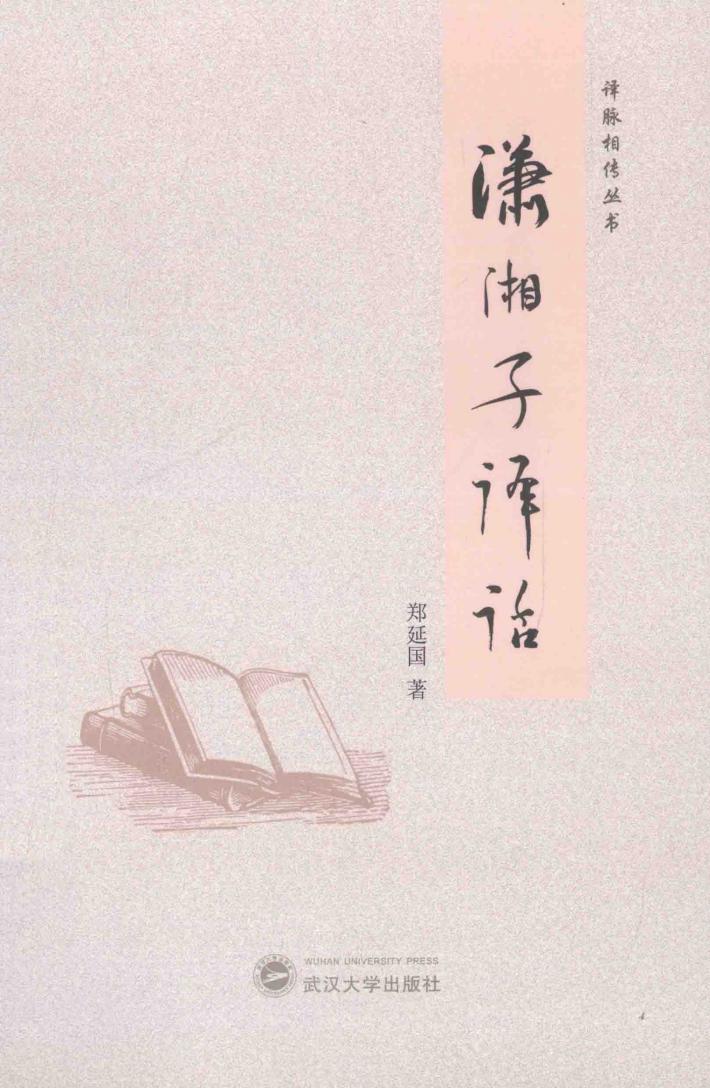 译脉相传丛书
潇湘子译话
郑延国 著
WUHAN UNIVERSITY PRESS
武汉大学出版社